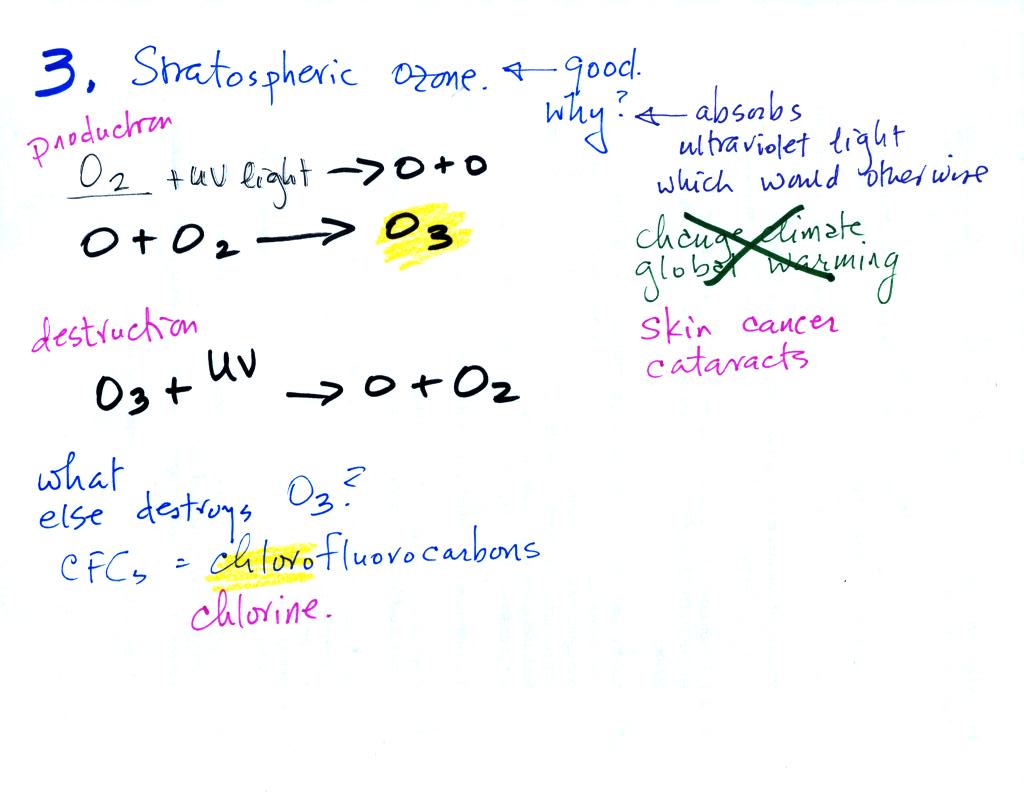 3. Stratospheric ozone. ← good.
why? ← absorbs
ultraviolet light
which would otherwise
change climate
global warming
skin cancer
cataracts
production
O2 + UV light → O + O
O + O2 → O3
destruction
O3 + UV → O + O2
what
else destroys O3?
CFCs = chlorofluorocarbons
chlorine.